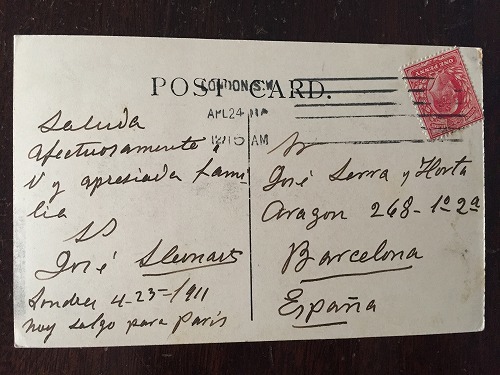 POST CARD.
LONDON. S.W.
APL 24 11
12 15 AM
ONE PENNY
Saluda
afectuosamente á
V y apresiada fami-
lia
SS
José
Londres 4-23-1911
hoy salgo para París
Sr
José Serra y Horta
Aragon 268-1º 2ª
Barcelona
España